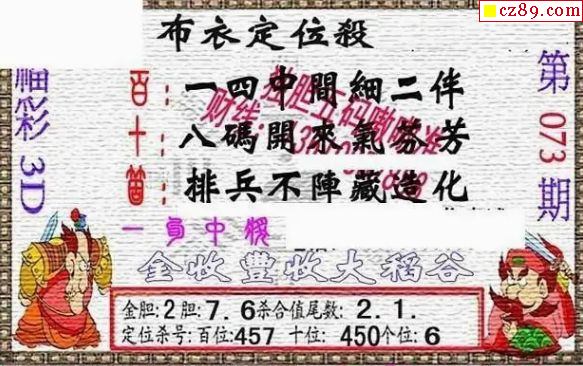 cz89.com
布衣定位殺
福彩3D
第073期
百：一四中間細二伴
十：八碼開來氣芬芳
個：排兵不陣藏造化
一角中獎
金收豐收大稻谷
金胆：2胆：7.6杀合值尾数：2.1.
定位杀号：百位：457 十位：450个位：6